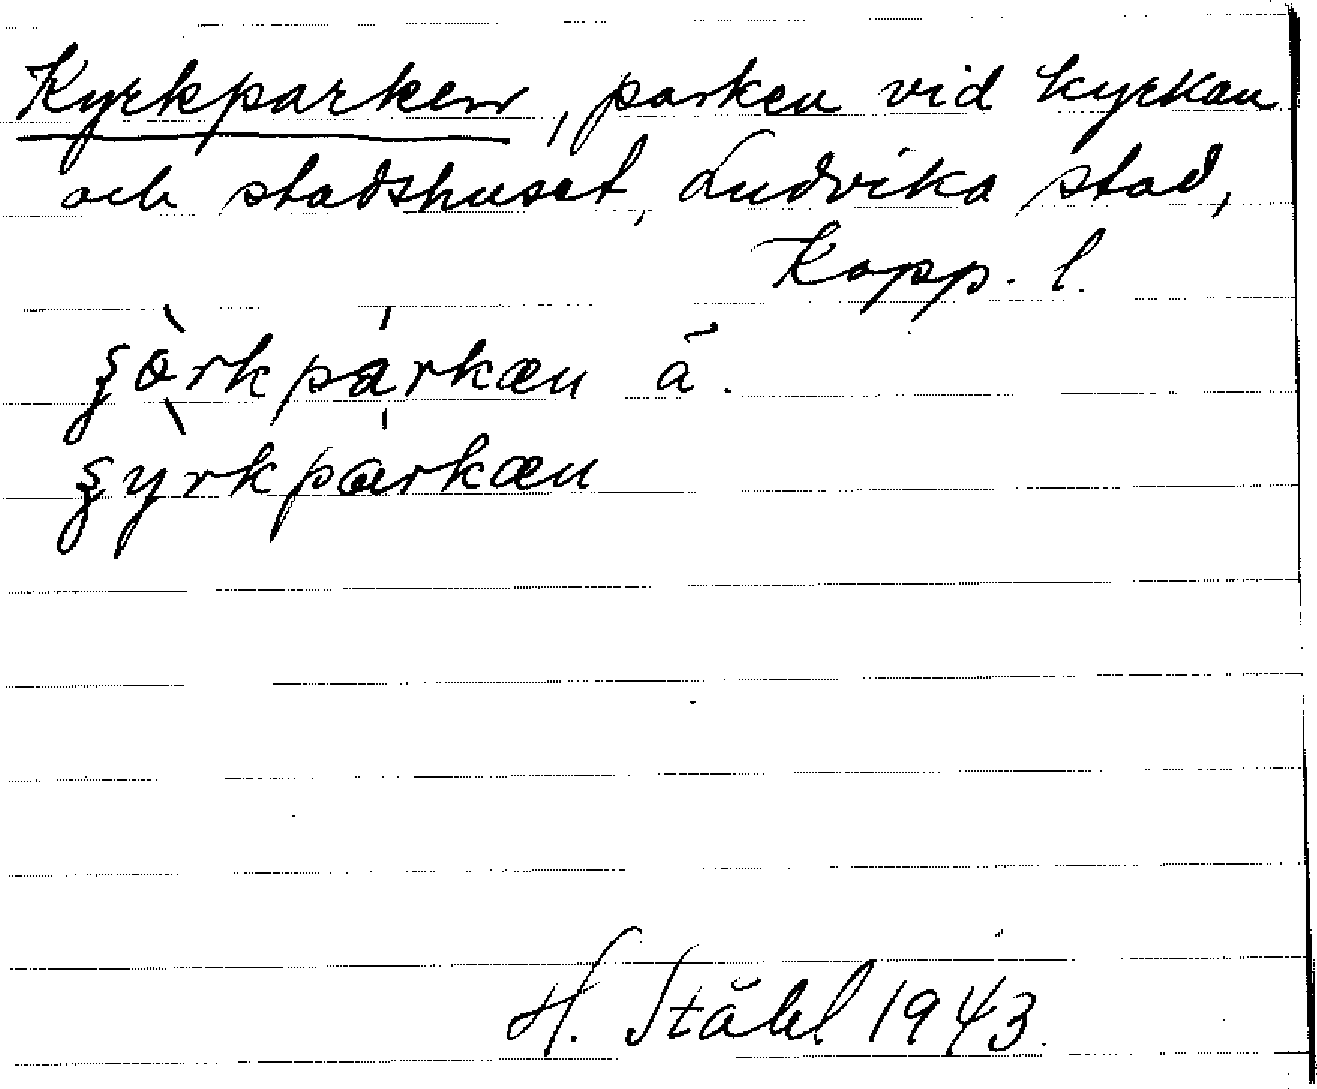 Kyrkparken, parken vid kyrkan
och stadshuset, Ludvika stad,
Kopp. l.
ʒò̀rkpárkæn ã.
ʒỳrkpárkæn
H. Ståhl 1943.